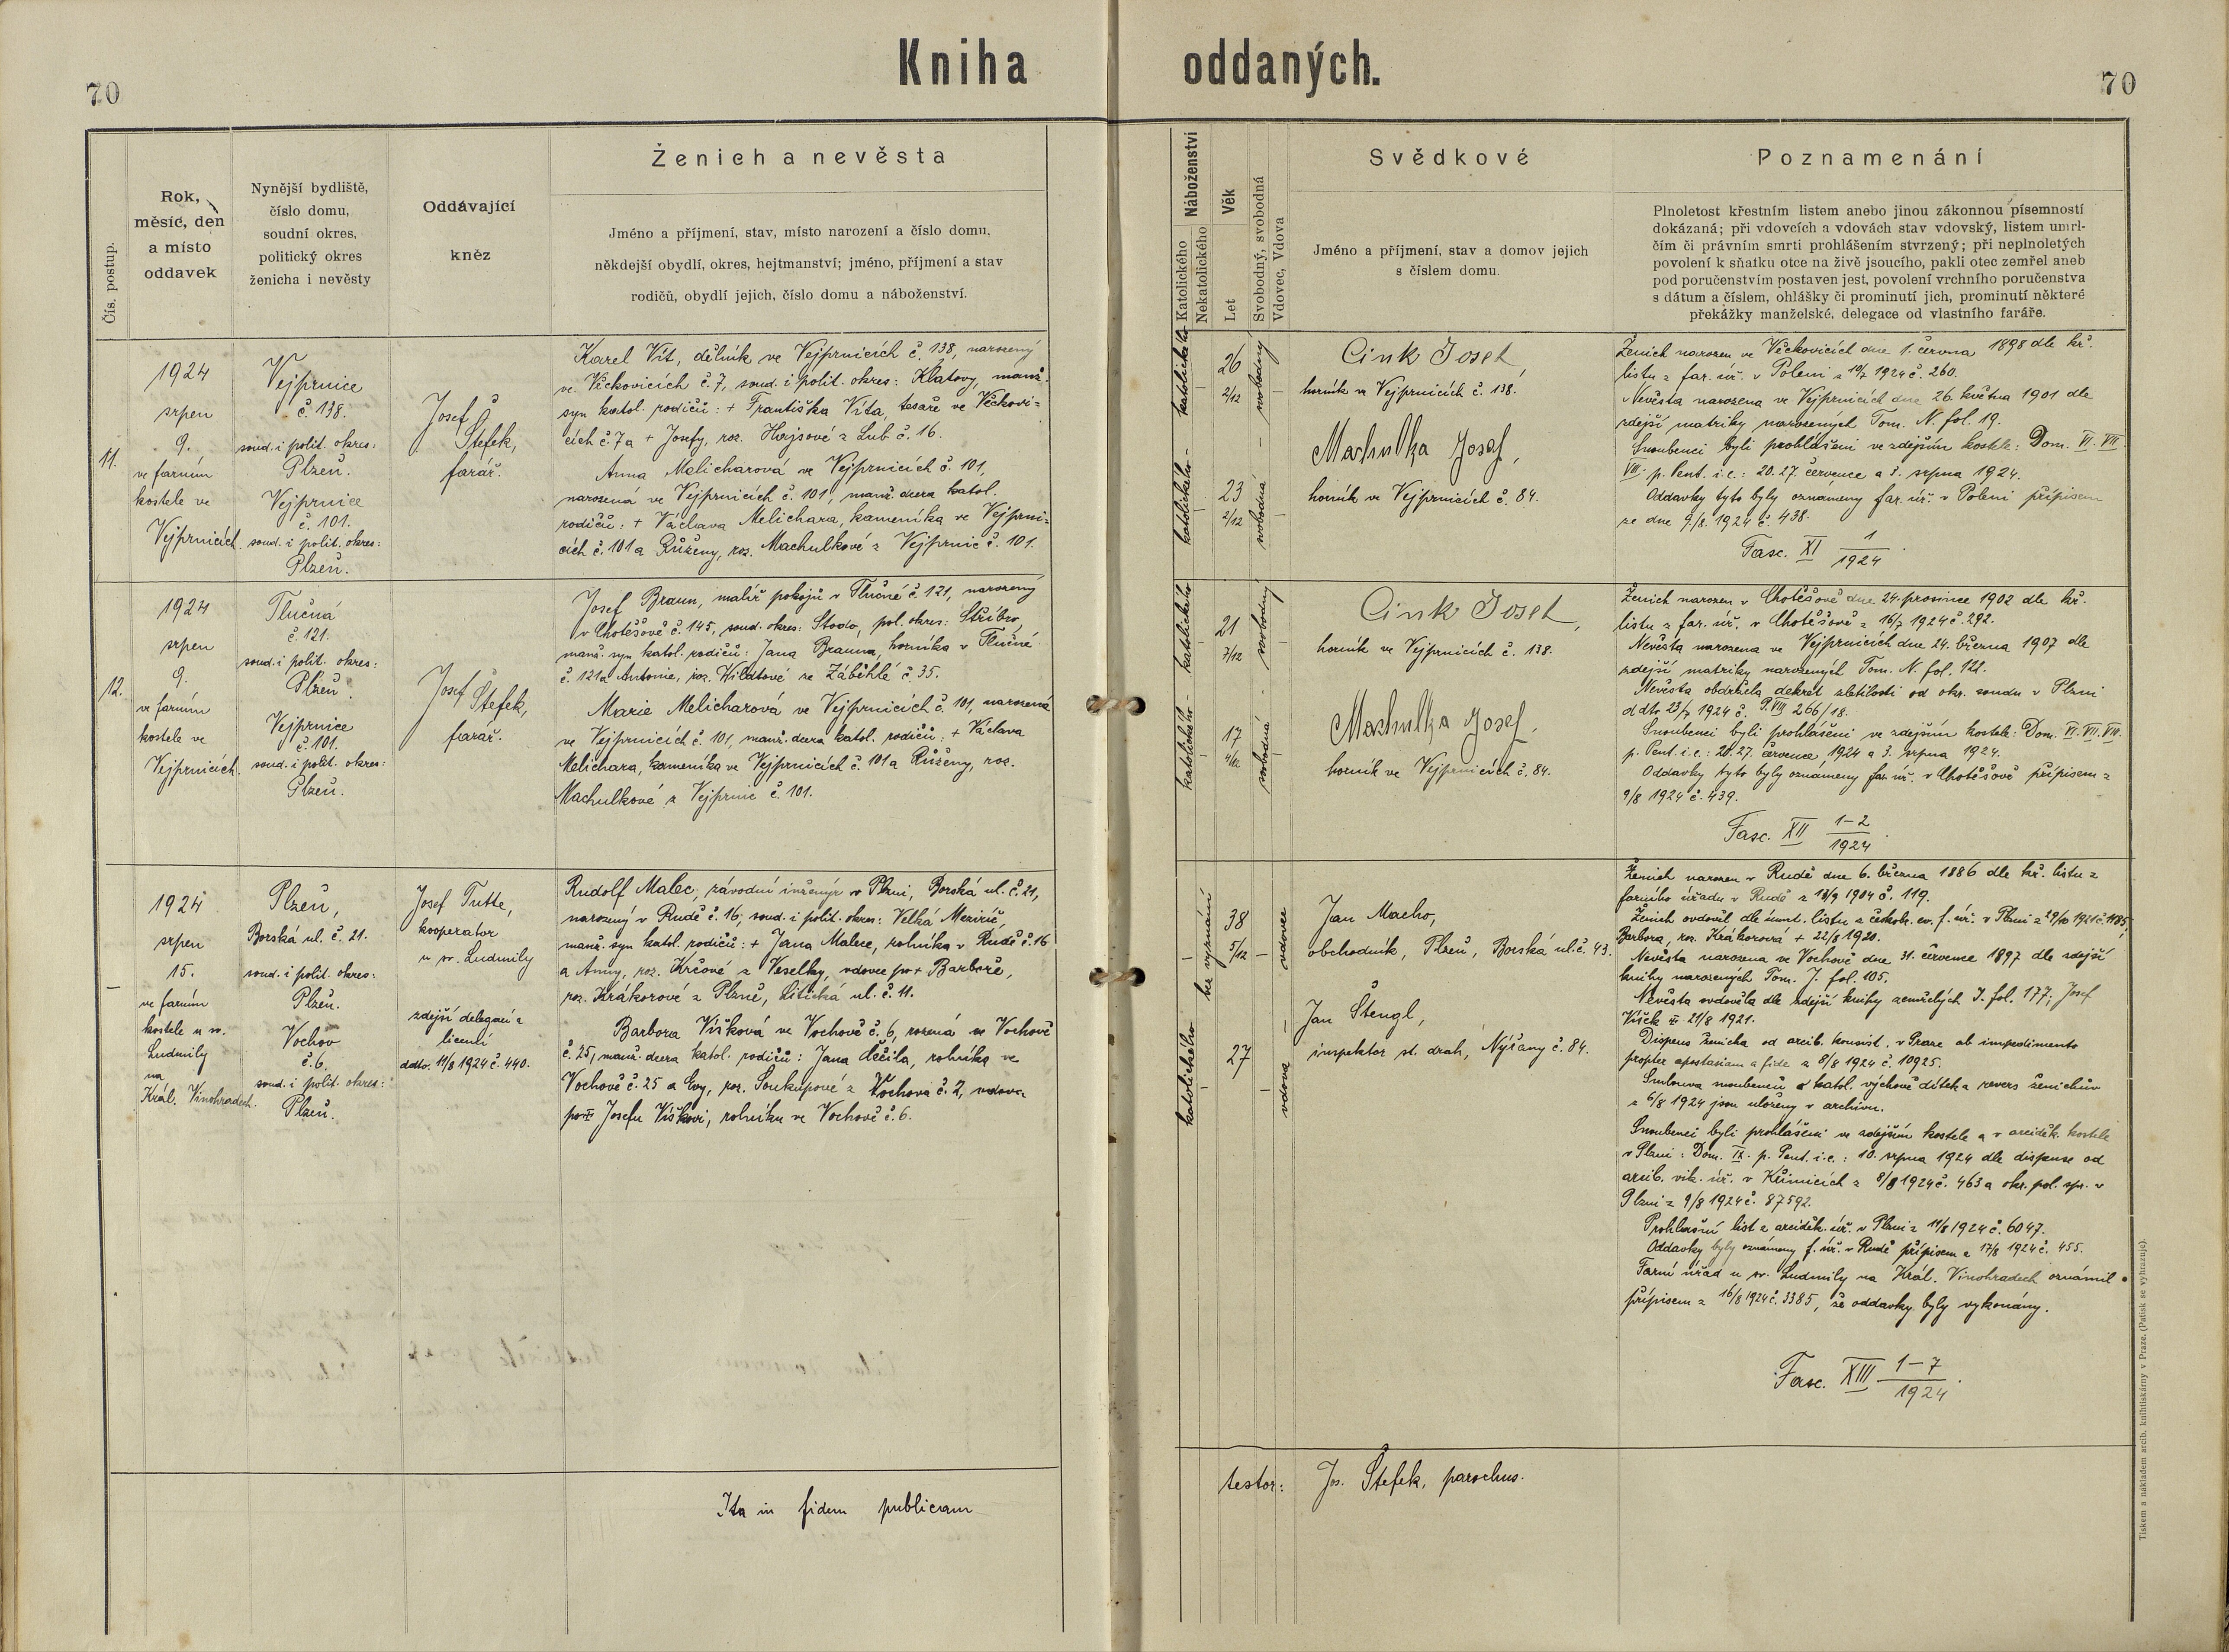 Kniha oddaných.
70
70
Čís. postup.
Rok,
měsíc, den
a místo
oddavek
Nynější bydliště,
číslo domu,
soudní okres,
politický okres
ženicha i nevěsty
Oddávající
kněz
Ženich a nevěsta
Jméno a příjmení, stav, místo narození a číslo domu,
někdejší obydlí, okres, hejtmanství; jméno, příjmení a stav
rodičů, obydlí jejich, číslo domu a náboženství.
Náboženství
Katolického
Nekatolického
Věk
Let
Svobodný, svobodná
Vdovec, Vdova
Svědkové
Jméno a příjmení, stav a domov jejich
s číslem domu.
Poznamenání
Plnoletost křestním listem anebo jinou zákonnou písemností
dokázaná; při vdovcích a vdovách stav vdovský, listem umrl-
čím či právním smrti prohlášením stvrzený; při neplnoletých
povolení k sňatku otce na živě jsoucího, pakli otec zemřel aneb
pod poručenstvím postaven jest, povolení vrchního poručenstva
s dátum a číslem, ohlášky či prominutí jich, prominutí některé
překážky manželské, delegace od vlastního faráře.
11.
1924
srpen
9.
ve farním
kostele ve
Vejprnicích.
Vejprnice
č. 138.
soud. i polit. okres:
Plzeň.
Vejprnice
č. 101.
soud. i polit. okres:
Plzeň.
Josef
Štefek,
farář.
Karel Vít, dělník ve Vejprnicích č. 138, narozený
ve Věckovicích č. 7, soud. i polit. okres: Klatovy, manž.
syn katol. rodičů: + Františka Víta, tesaře ve Věckovi-
cích č. 7 a + Josefy, roz. Hajsové z Lub č. 16.
Anna Melicharová ve Vejprnicích č. 101,
narozená ve Vejprnicích č. 101, manž. dcera katol.
rodičů: + Václava Melichara, kameníka ve Vejprni-
cích č. 101 a Růženy, roz. Machulkové z Vejprnic č. 101.
katolického
26
2/12
svobodný
katolického
23
2/12
svobodná
Cink Josef
horník ve Vejprnicích č. 138.
Machulka Josef,
horník ve Vejprnicích č. 84.
Ženich narozen ve Věckovicích dne 1. června 1898 dle kř.
listu z far. úř. v Poleni z 10/7 1924 č. 260.
Nevěsta narozena ve Vejprnicích dne 26. května 1901 dle
zdejší matriky narozených Tom. N. fol. 19.
Snoubenci byli prohlášeni ve zdejším kostele: Dom. VI. VII.
VIII. p. Pent. i. e.: 20. 27. července a 3. srpna 1924.
Oddavky tyto byly oznámeny far. úř. v Poleni přípisem
ze dne 9/8. 1924 č. 438.
Fasc. XI 1/1924.
12.
1924
srpen
9.
ve farním
kostele ve
Vejprnicích.
Tlučná
č. 121.
soud. i polit. okres:
Plzeň.
Vejprnice
č. 101.
soud. i polit. okres:
Plzeň.
Josef Štefek,
farář.
Josef Braun, malíř pokojů v Tlučné č. 121, narozený
v Chotěšově č. 145, soud. okres: Stodo, pol. okres: Stříbro,
manž. syn katol. rodičů: Jana Brauna, horníka v Tlučné
č. 121 a Antonie, roz. Wildtové ze Záběhlé č. 35.
Marie Melicharová ve Vejprnicích č. 101, narozená
ve Vejprnicích č. 101, manž. dcera katol. rodičů: + Václava
Melichara, kameníka ve Vejprnicích č. 101 a Růženy, roz.
Machulkové z Vejprnic č. 101.
katolického
21
7/12
svobodný
katolického
17
4/12
svobodná
Cink Josef,
horník ve Vejprnicích č. 138.
Machulka Josef.
horník ve Vejprnicích č. 84.
Ženich narozen v Chotěšově dne 24. prosince 1902 dle kř.
listu z far. úř. v Chotěšově z 16/7 1924 č. 292.
Nevěsta narozena ve Vejprnicích dne 24. března 1907 dle
zdejší matriky narozených Tom. N. fol. 122.
Nevěsta obdržela dekret zletilosti od okr. soudu v Plzni
ddto 23/7 1924 č. P. VIII 266/18.
Snoubenci byli prohlášeni ve zdejším kostele: Dom. VI. VII. VIII.
p. Pent. i. e.: 20. 27. července 1924 a 3. srpna 1924.
Oddavky tyto byly oznámeny far. úř. v Chotěšově přípisem z
9/8 1924 č. 439.
Fasc. XII 1-2/1924.
1924
srpen
15.
ve farním
kostele u sv.
Ludmily
na
Král. Vinohradech.
Plzeň,
Borská ul. č. 21.
soud. i polit. okres:
Plzeň.
Vochov
č. 6.
soud. i polit. okres:
Plzeň.
Josef Tutte,
kooperator
u sv. Ludmily
zdejší delegací a
licencí
ddto. 11/8 1924 č. 440.
Rudolf Malec, závodní inženýr v Plzni, Borská ul. č. 21,
narozený v Rudě č. 16, soud. i polit. okres: Velká Meziříč,
manž. syn katol. rodičů: + Jana Malce, rolníka v Rudě č. 16
a Anny, roz. Krčové z Veselky, vdovec po + Barboře,
roz. Krákorové z Plzně, Litická ul. č. 11.
Barbora Víšková ve Vochově č. 6, rozená ve Vochově
č. 25, manž. dcera katol. rodičů: Jana Děčila, rolníka ve
Vochově č. 25 a Evy, roz. Soukupové z Vochova č. 2, vdova
po Josefu Víškovi, rolníku ve Vochově č. 6.
bez vyznání
38
5/12
vdovec
katolického
27
vdova
Jan Macho,
obchodník, Plzeň, Borská ul. č. 43.
Jan Štengl,
inspektor st. drah, Nýřany č. 84.
Ženich narozen v Rudě dne 6. března 1886 dle kř. listu z
farního úřadu v Rudě z 13/9 1904 č. 119.
Ženich ovdověl dle úmrt. listu z českobr. ev. f. úř. v Plzni z 29/10 1921 č. 1185,
Barbora, roz. Krákorová + 22/8 1920.
Nevěsta narozena ve Vochově dne 31. července 1897 dle zdejší
knihy narozených Tom. J. fol. 105.
Nevěsta ovdověla dle zdejší knihy zemřelých J. fol. 177; Josef
Víšek 21/8 1921.
Dispens ženicha od arcib. konsist. v Praze ab impedimento
propter apostasiam a fide z 8/8 1924 č. 10925.
Smlouva snoubenců o katol. výchově dítek a revers ženichův
z 6/8 1924 jsou uloženy v archivu.
Snoubenci byli prohlášeni ve zdejším kostele a v arciděk. kostele
v Plzni: Dom. IX. p. Pent. i. e.: 10. srpna 1924 dle dispense od
arcib. vik. úř. v Křimicích z 9/8 1924 č. 463 a okr. pol. spr. v
Plzni z 9/8 1924 č. 87592.
Prohlašní list z arciděk. úř. v Plzni z 11/8 1924 č. 6047.
Oddavky byly oznámeny f. úř. v Rudě přípisem z 17/8 1924 č. 455.
Farní úřad u sv. Ludmily na Král. Vinohradech oznámil
přípisem z 16/8 1924 č. 3385, že oddavky byly vykonány.
Fasc. XIII 1-7/1924.
Ita in fidem publicam
testor: Jos. Štefek, parochus.
Tiskem a nákladem arcib. knihtiskárny v Praze. (Patisk se vyhrazuje).